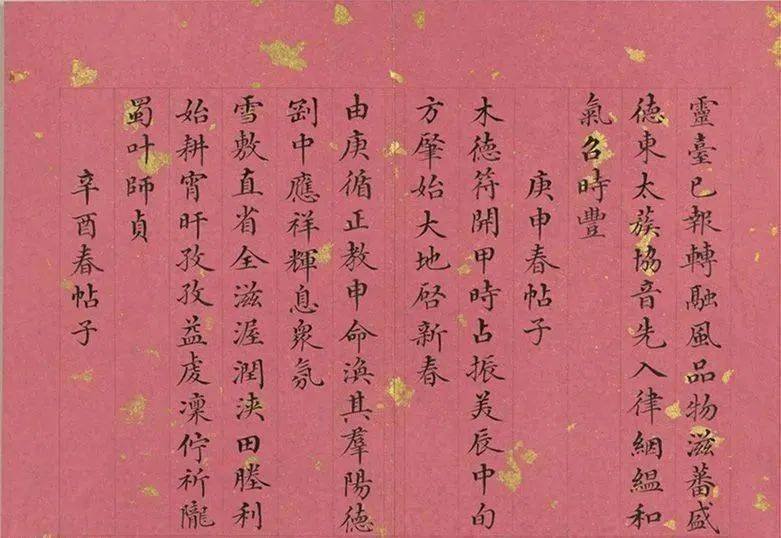 靈臺已報轉融風品物滋蕃盛
德東太蔟協音先入律絪縕和
氣召時豐
庚申春帖子
木德符開甲時占振美辰中旬
方肇始大地啓新春
由庚循正教申命渙其羣陽德
剛中應祥輝息衆氛
雪敷直省全滋渥潤浹田塍利
始耕宵旰孜孜益虔凜佇祈隴
蜀叶師貞
辛酉春帖子